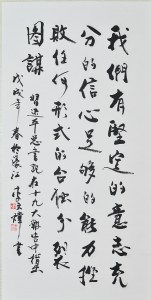 我們有堅定的意志充
分的信心足够的能力挫
敗任何形式的台獨分裂
圖謀 習近平總書記在十九大報告中
戊戌年春於香江 李輝書